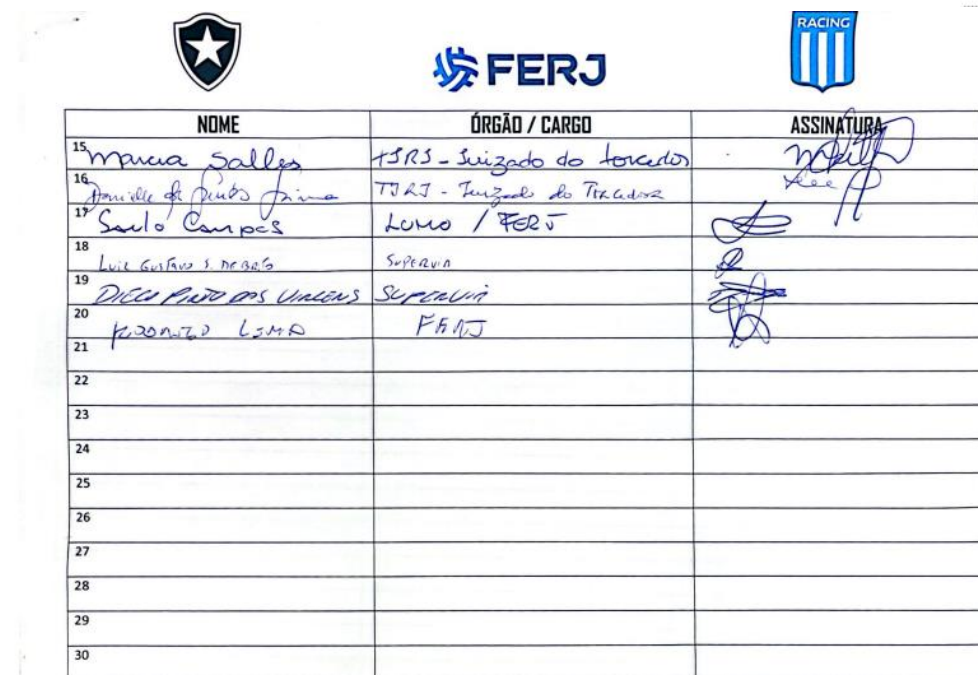 RACING
FERJ
NOME ÓRGÃO / CARGO ASSINATURA
15 Marcia Salles TJRJ - Juizado do torcedor
16 Danielle TJRJ - Juizado do Torcedor
17 Saulo Campos / FERJ
18 Luiz Gustavo S. de Supervia
19 DIEGO PINTO DOS VIRGENS SUPERVIA
20 RODRIGO LIMA FERJ
21
22
23
24
25
26
27
28
29
30